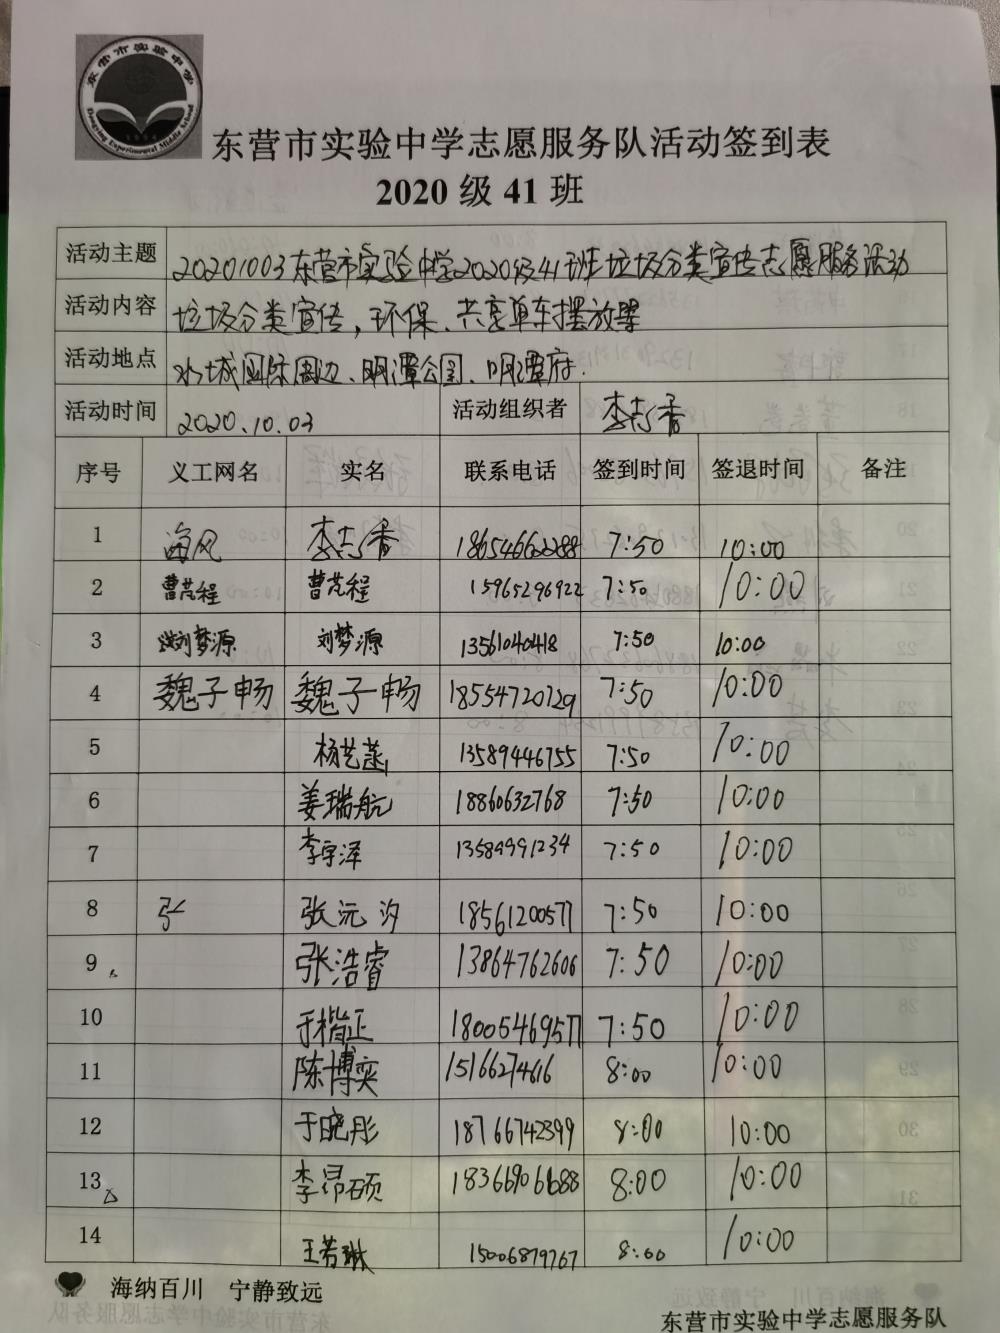 东营市实验中学
Dongying Experimental Middle School
东营市实验中学志愿服务队活动签到表
2020 级 41 班
活动主题 20201003东营市实验中学2020级41班垃圾分类宣传志愿服务活动
活动内容 垃圾分类宣传，环保、共享单车摆放
活动地点 水城国际周边、明潭公园、明潭府.
活动时间 2020.10.03 活动组织者 李志香
序号 义工网名 实名 联系电话 签到时间 签退时间 备注
1 海风 李志香 18654660288 7:50 10:00
2 曹芃程 曹芃程 15965296922 7:50 10:00
3 刘梦源 刘梦源 13561040418 7:50 10:00
4 魏子畅 魏子畅 18554720729 7:50 10:00
5 杨艺菡 13589446755 7:50 10:00
6 姜瑞航 18860632768 7:50 10:00
7 李宇泽 13589991234 7:50 10:00
8 张 张沅汐 18561200577 7:50 10:00
9 张浩睿 13864762606 7:50 10:00
10 于楷正 18005469577 7:50 10:00
11 陈博奕 15166274616 8:00 10:00
12 于晓彤 18766742399 8:00 10:00
13 李昂硕 18366906688 8:00 10:00
14 王若琳 15006879767 8:00 10:00
海纳百川 宁静致远
东营市实验中学志愿服务队